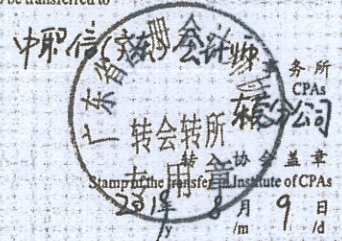 be transferred to
中职信(广东)会计师
事务所
CPAs
东莞分公司
广东省注册会计师协会
转会转所
专用章
转会协会盖章
Stamp of the Transfer Institute of CPAs
2019年8月9日
/y /m /d